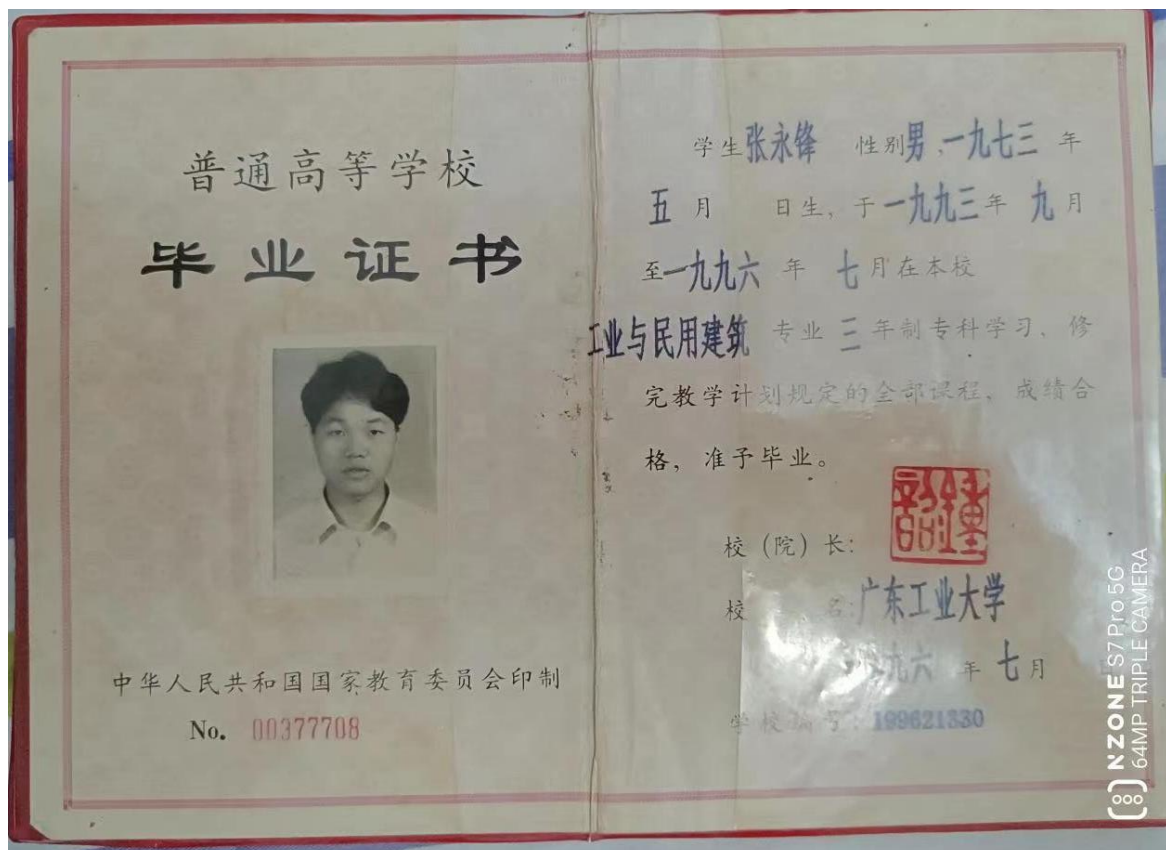 普通高等学校
毕业证书
中华人民共和国国家教育委员会印制
No. 00377708
学生张永锋 性别男,一九七三年
五月 日生,于一九九三年九月
至一九九六年七月在本校
工业与民用建筑专业三年制专科学习、修
完教学计划规定的全部课程,成绩合
格,准予毕业。
校(院)长:
校 名:广东工业大学
九六年七月 日
学校编号:199621330
NZONE S7 Pro 5G
64MP TRIPLE CAMERA